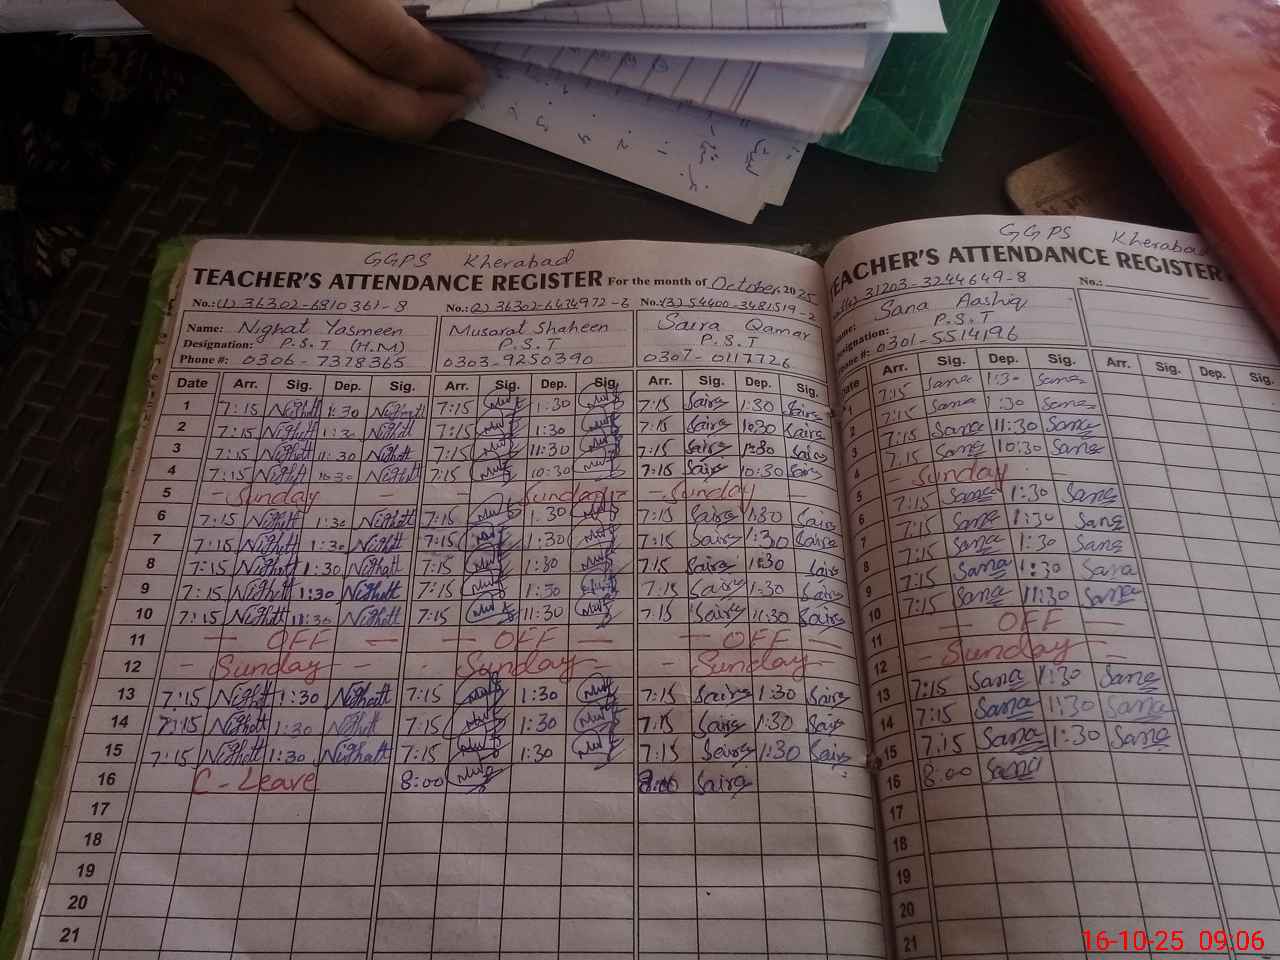 GGPS Kherabad
TEACHER'S ATTENDANCE REGISTER For the month of October 2025
No.: (1) 36302-6810361-8 No.: (2) 36302-6474972-6 No.: (3) 54400-3481519-2
Name: Nighat Yasmeen Musarat Shaheen Saira Qamar
Designation: P.S.T (H.M) P.S.T P.S.T
Phone #: 0306-7378365 0303-9250390 0307-0117726
Date Arr. Sig. Dep. Sig. Arr. Sig. Dep. Sig. Arr. Sig. Dep. Sig.
1 7:15 Nighatt 1:30 Nighatt 7:15 1:30 7:15 Saira 1:30 Saira
2 7:15 Nighatt 1:30 Nighatt 7:15 1:30 7:15 Saira 1:30 Saira
3 7:15 Nighatt 11:30 Nighatt 7:15 11:30 7:15 Saira Saira
4 7:15 Nighatt 10:30 Nighatt 7:15 10:30 7:15 Saira 10:30 Saira
5 - Sunday - - Sunday - - Sunday -
6 7:15 Nighatt 1:30 Nighatt 7:15 1:30 7:15 Saira 1:30 Saira
7 7:15 Nighatt 1:30 Nighatt 7:15 1:30 7:15 Saira 1:30 Saira
8 7:15 Nighatt 1:30 Nighatt 7:15 1:30 7:15 Saira 1:30 Saira
9 7:15 Nighatt 1:30 Nighatt 7:15 1:30 7:15 Saira 1:30 Saira
10 7:15 Nighatt 11:30 Nighatt 7:15 11:30 7:15 Saira 11:30 Saira
11 - OFF - - OFF - - OFF -
12 - Sunday - - Sunday - - Sunday -
13 7:15 Nighatt 1:30 Nighatt 7:15 1:30 7:15 Saira 1:30 Saira
14 7:15 Nighatt 1:30 Nighatt 7:15 1:30 7:15 Saira 1:30 Saira
15 7:15 Nighatt 1:30 Nighatt 7:15 1:30 7:15 Saira 1:30 Saira
16 C-Leave 8:00 8:00 Saira
17
18
19
20
21
GGPS Kherabad
TEACHER'S ATTENDANCE REGISTER
(4) 31203-3244649-8 No.:
Name: Sana Aashiq
Designation: P.S.T
Phone #: 0301-5514196
Date Arr. Sig. Dep. Sig. Arr. Sig. Dep. Sig.
1 7:15 Sana 1:30 Sana
2 7:15 Sana 1:30 Sana
3 7:15 Sana 11:30 Sana
4 7:15 Sana 10:30 Sana
5 - Sunday -
6 7:15 Sana 1:30 Sana
7 7:15 Sana 1:30 Sana
8 7:15 Sana 1:30 Sana
9 7:15 Sana 1:30 Sana
10 7:15 Sana 11:30 Sana
11 - OFF -
12 - Sunday -
13 7:15 Sana 1:30 Sana
14 7:15 Sana 1:30 Sana
15 7:15 Sana 1:30 Sana
16 8:00 Sana
17
18
19
20
21
16-10-25 09:06